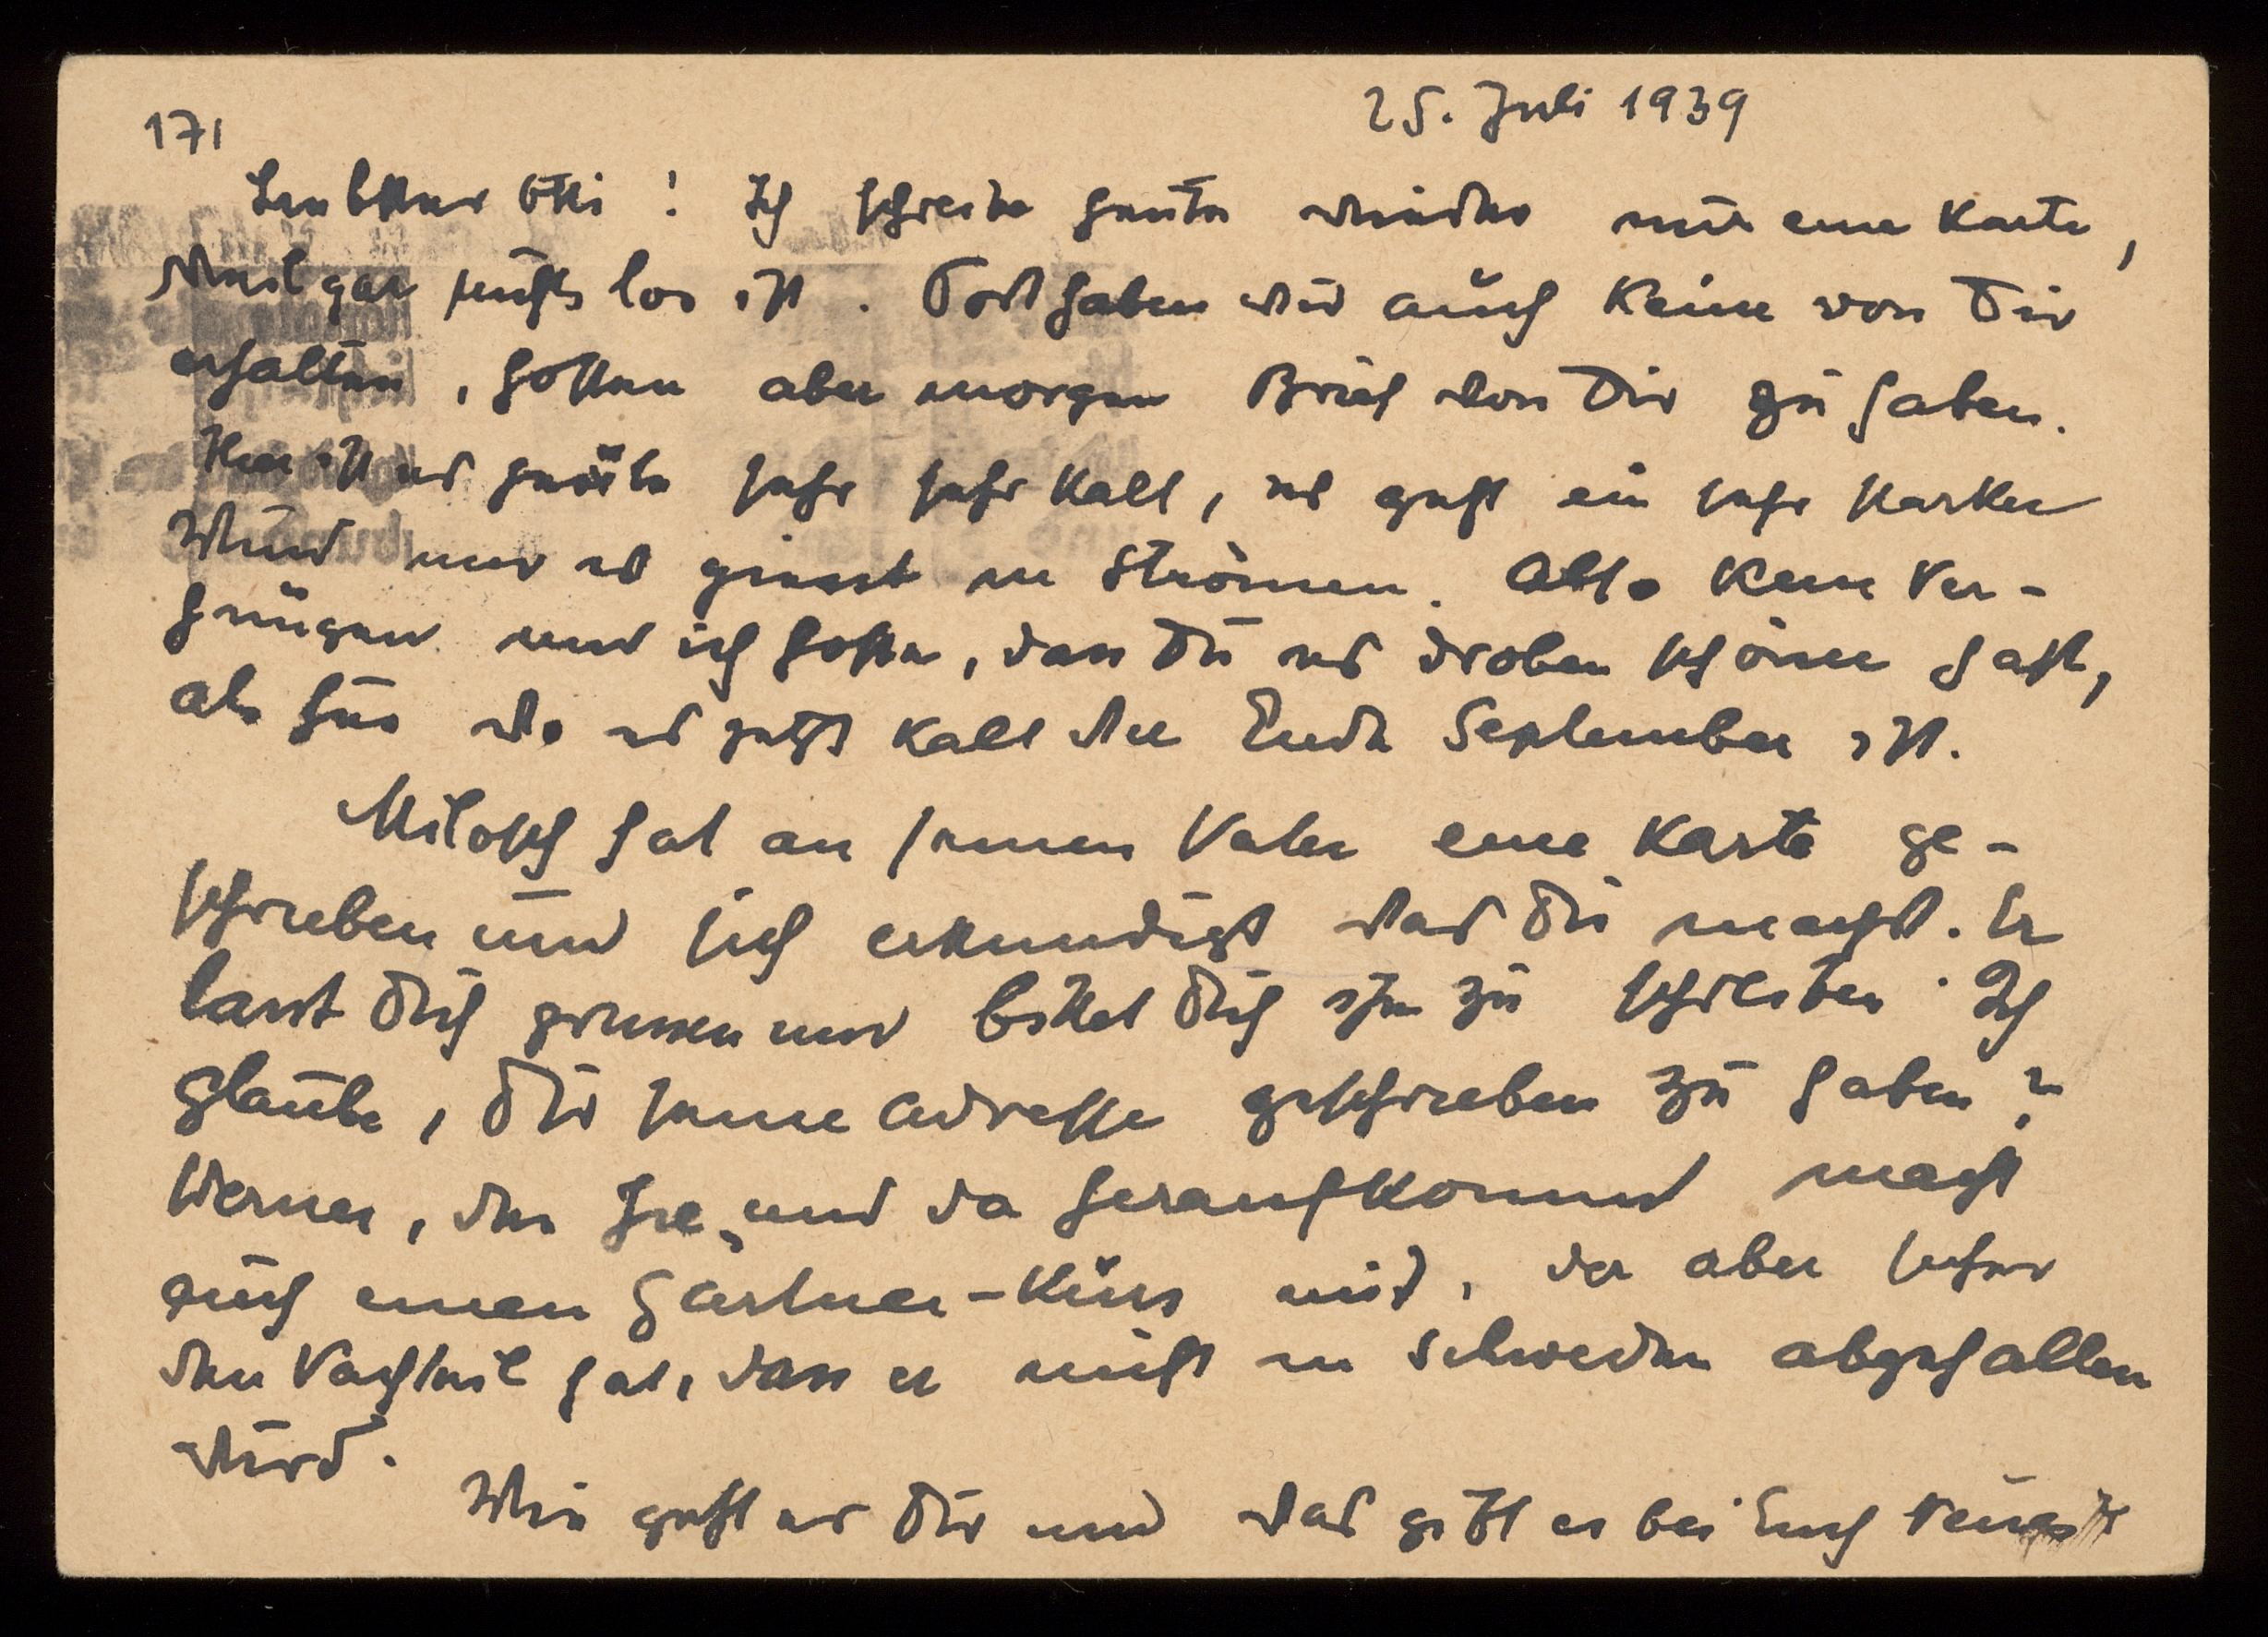 171
25. Juli 1939
Liebster Otti! Ich schreibe heute wieder nur eine Karte,
weil gar nichts los ist. Post haben wir auch keine von Dir
erhalten, hoffen aber morgen Brief von Dir zu haben.
Hier ist es heute sehr sehr kalt, es geht ein sehr starker
Wind und es giesst in Strömen. Also kein Ver-
gnügen und ich hoffe, dass Du es droben schöner hast,
als hier wo es jetzt kalt wie Ende September ist.
Milosch hat an seinen Vater eine Karte ge-
schrieben und sich erkundigt was Du machst. Er
lasst Dich grussen und bittet Dich ihm zu schreiben. Ich
glaube, Dir seine Adresse geschrieben zu haben?
Werner, der hie und da heraufkommt macht
auch einen Gartner-Kurs mit, der aber
den Nachteil hat, dass er nicht in Schweden abgehalten
wird.
Wie geht es Dir und was gibt es bei Euch Neues